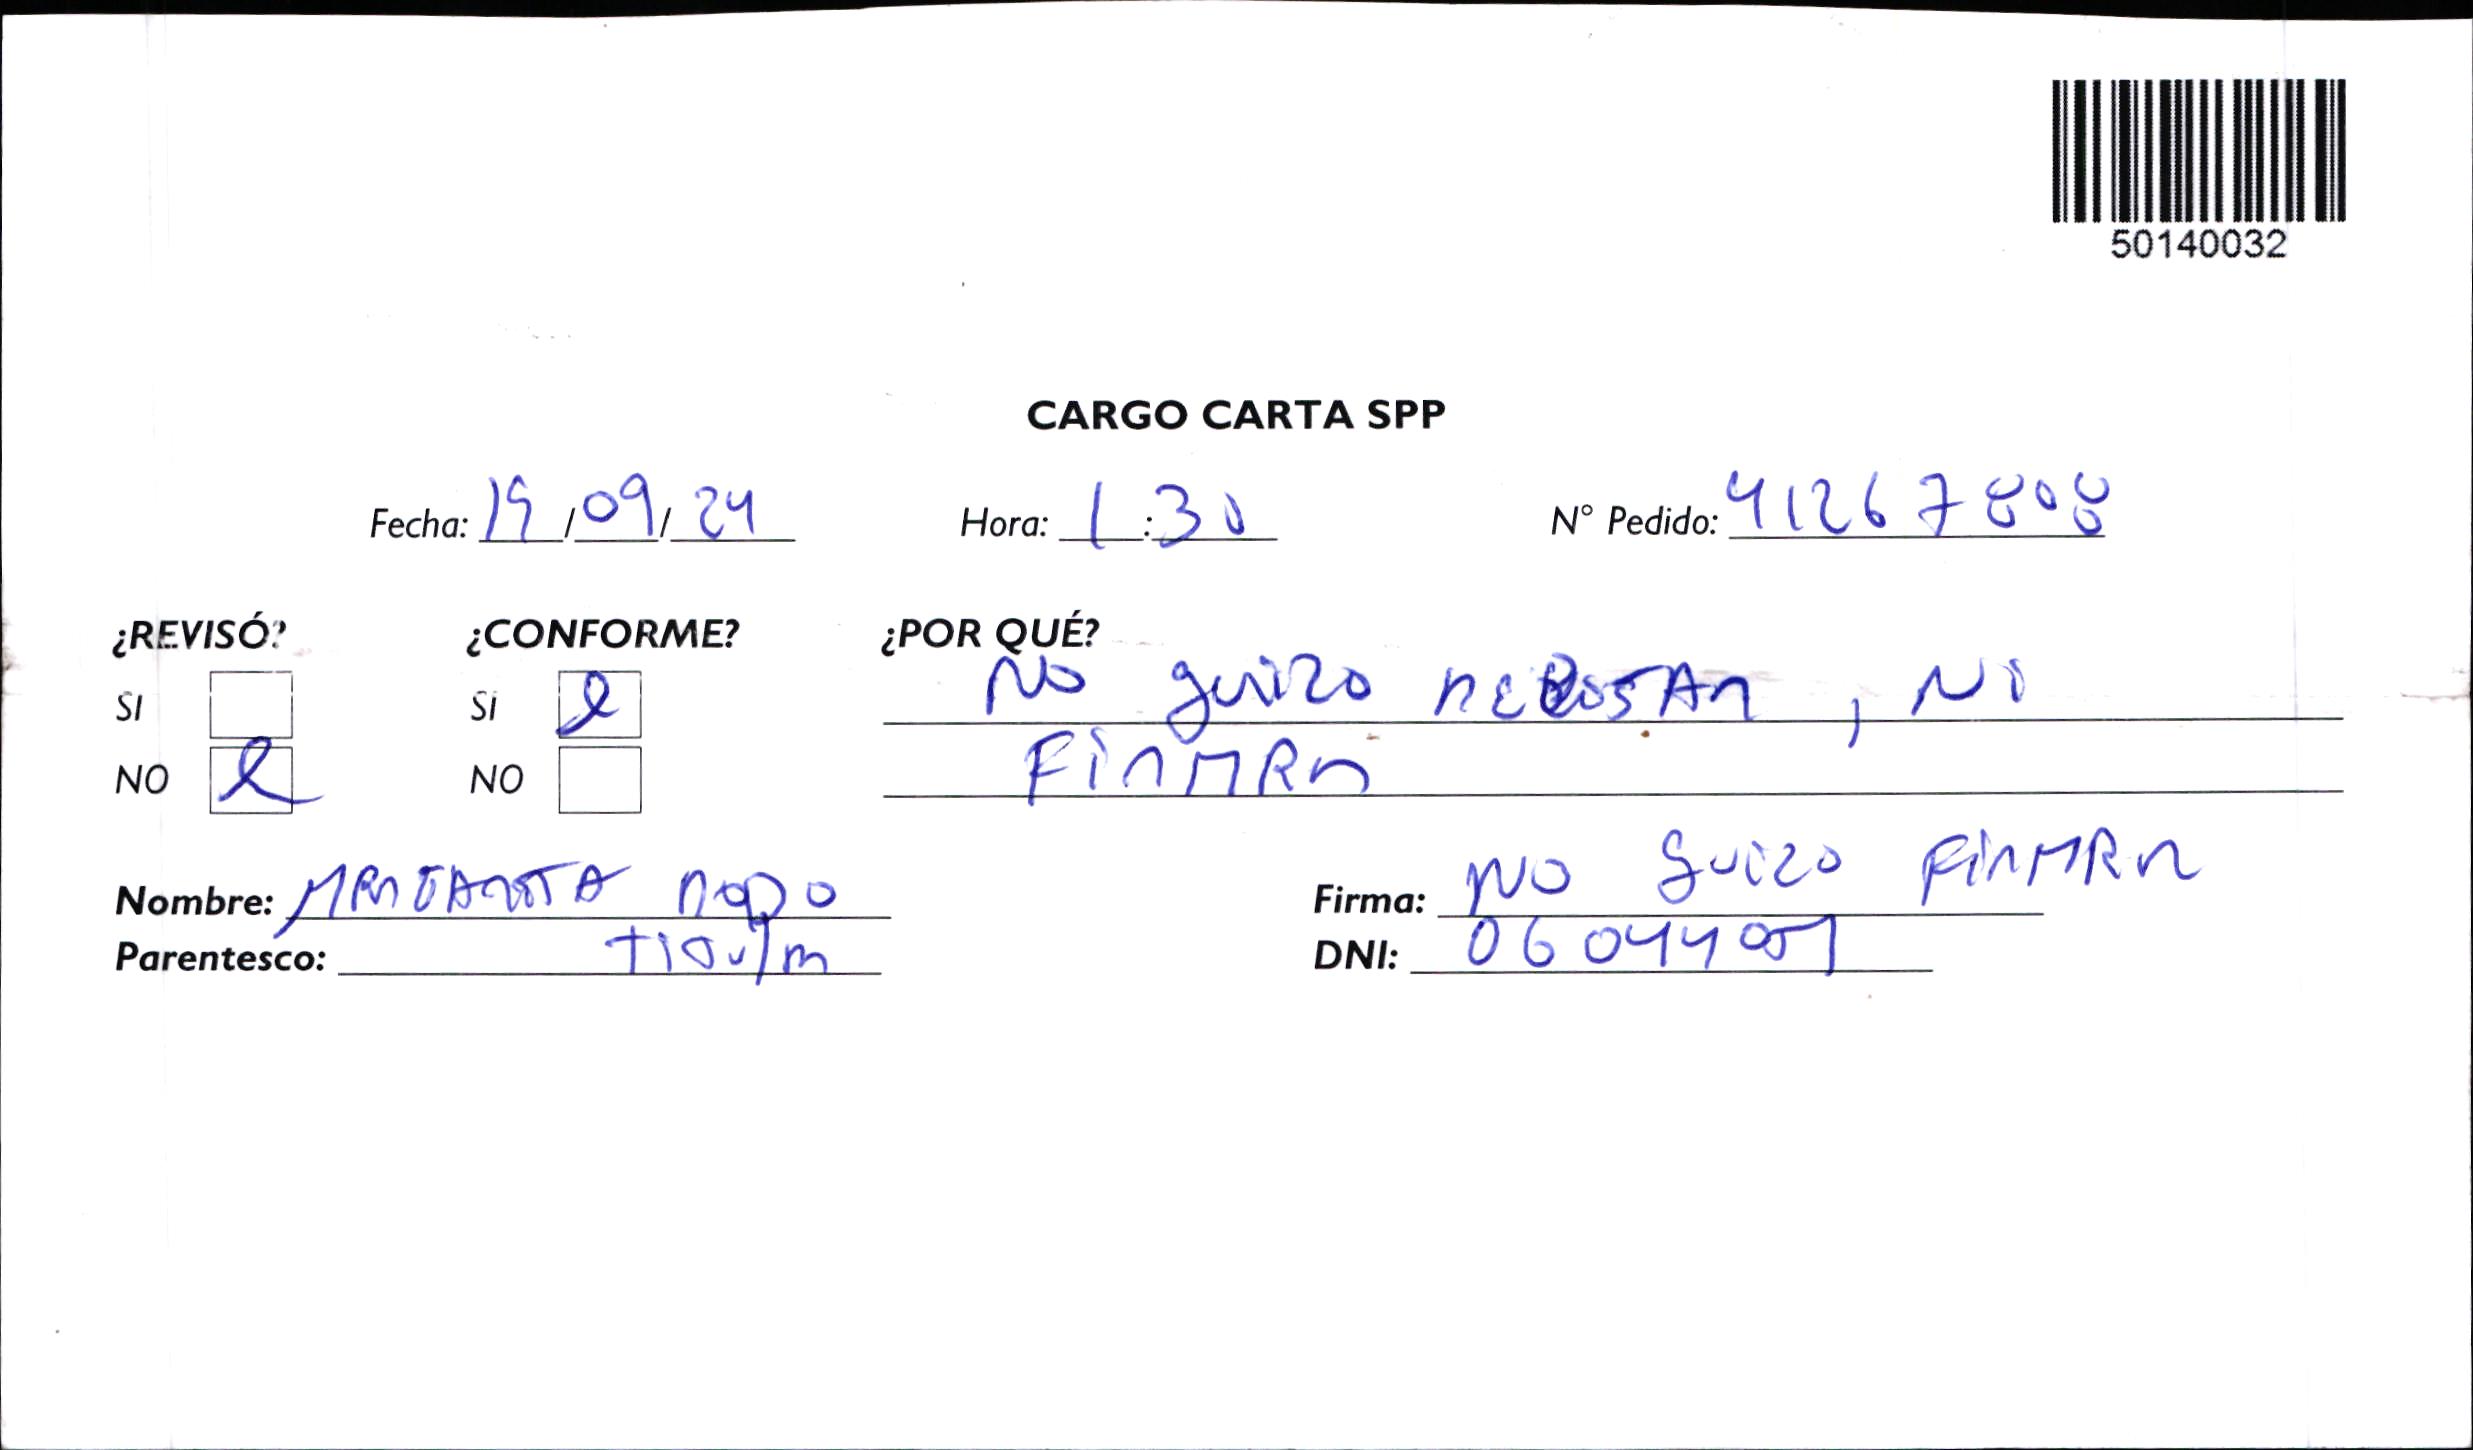 50140032
CARGO CARTA SPP
Fecha: 19/09/24 Hora: 1:30 N° Pedido: 41267808
¿REVISÓ? ¿CONFORME? ¿POR QUÉ?
No quizo, Ni
SI SI
FIRMAR
NO NO
Nombre: Firma: NO quizo FIRMAR
Parentesco: DNI: